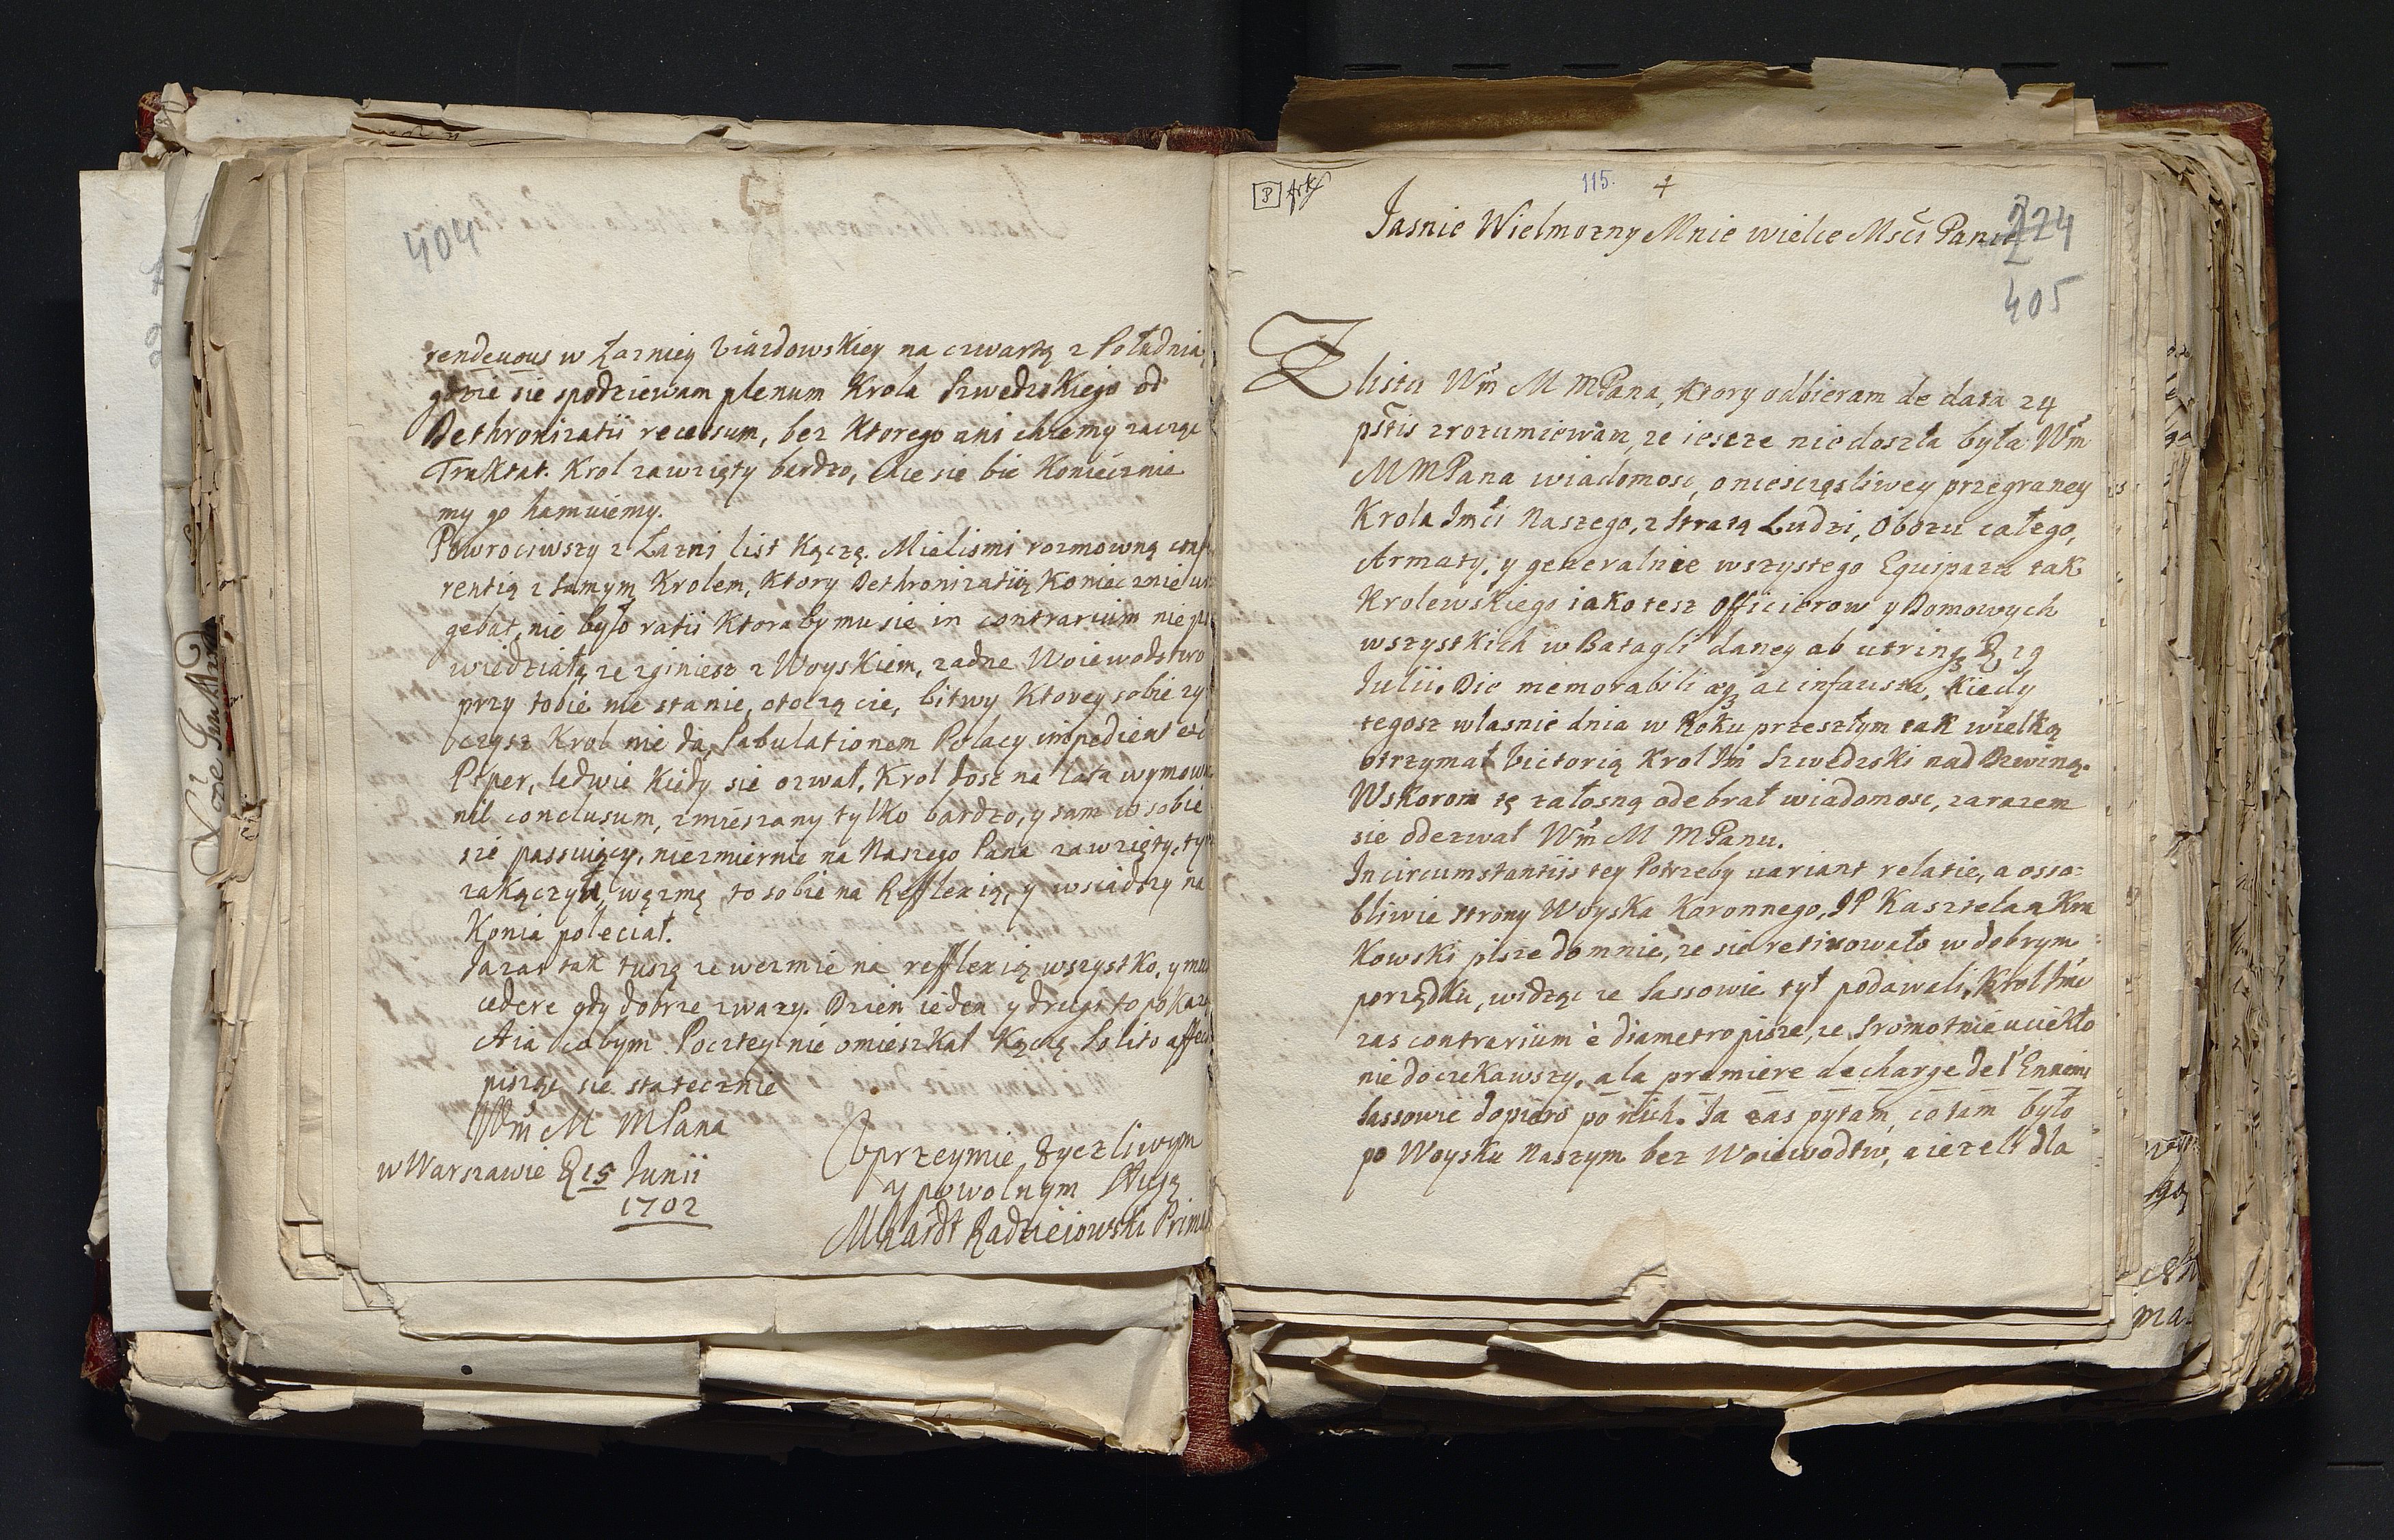 404
rendeuous w Łazniey Uiazdowskiey na czwartą z Południa,
gdzie sie spodziewam plenum Krola Szwedzkiego od
Dethronizatii recessum, bez Ktorego ani chcemy zacząc
Traktat. Krol zawzięty bardzo, chce sie bic Koniecznie
my go hamuiemy.
Powrociwszy z Łazni list Kączę. Mielismi rozmowną conf
rentią z samym Krolem, Ktory Dethronizatią Koniecznie ur
gebat, nie było ratii Ktoraby mu sie in contrarium nie po
wiedziała, ze zginiesz z Woyskiem, zadne Woiewodztwo
przy tobie nie stanie, otoczą cie, bitwy Ktorey sobie zy
czysz Krol nie da, Pabulationem Polacy impedient etc
Piper, ledwie Kiedy sie ozwał, Krol dosc na
nil conclusum, zmieszany tylko bardzo, y sam w sobie
sie passuiący, niezmiernie na Naszego Pana zawzięty, ty
zakączył, wezmę to sobie na Refflexią, y wsiadszy na
Konia poleciał.
Ja zas tak tuszą ze wezmie na refflexią wszystko, y mu
cedere gdy dobrze zwazy. Dzien ieden y drugi to pokaze
A ia cobym Poczty nie omieszkał Kączę Solito affec
pisząc sie statecznie
Wm̃ M MPana
w Warszawie D 15 Junii
1702
Uprzeymie Zyczliwym
y powolnym Sługą
MKardt Radzieiowski Prima
115.
+
224
405
Jasnie Wielmozny Mnie wielce Msći Panie
Z listu Wm̃ M MPana, Ktory odbieram de data 24
pñtis zrozumiewam, ze iescze nie doszła była Wm̃
M MPana wiadomosc, o niesczęsliwey przegraney
Krola Jmći Naszego, z stratą Ludzi, Obozu całego,
Armaty, y generalnie wszystego Equipazu tak
Krolewskiego iako tesz Officierow y Domowych
wszystkich w Batagli daney ab utrinqз D 19
Julii. Die memorabili aeqз ac infausta, Kiedy
tegosz własnie dnia w Roku przeszłym tak wielką
otrzymał Victorią Krol Jm̃ Szwedzki nad Dzwiną.
Wskorom tę załosną odebrał wiadomosc, zarazem
sie odezwał Wm̃ M MPanu.
In circumstantiis tey Potrzeby variant relatie, a osso=
bliwie strony Woyska Koronnego, JP Kasztelan Kra
Kowski pisze do mnie, ze sie retirowało w dobrym
porządku, widząc ze Sassowie tył podawali, Krol Jmć
zas contrarium è diametro pisze, ze sromotnie uciekło
nie doczekawszy, a la premiere decharge de l'Ennemi
Sassowie dopiero po nich. Ja zas pytam, co tam było
po Woysku Naszym bez Woiewodztw, a iezeli dla